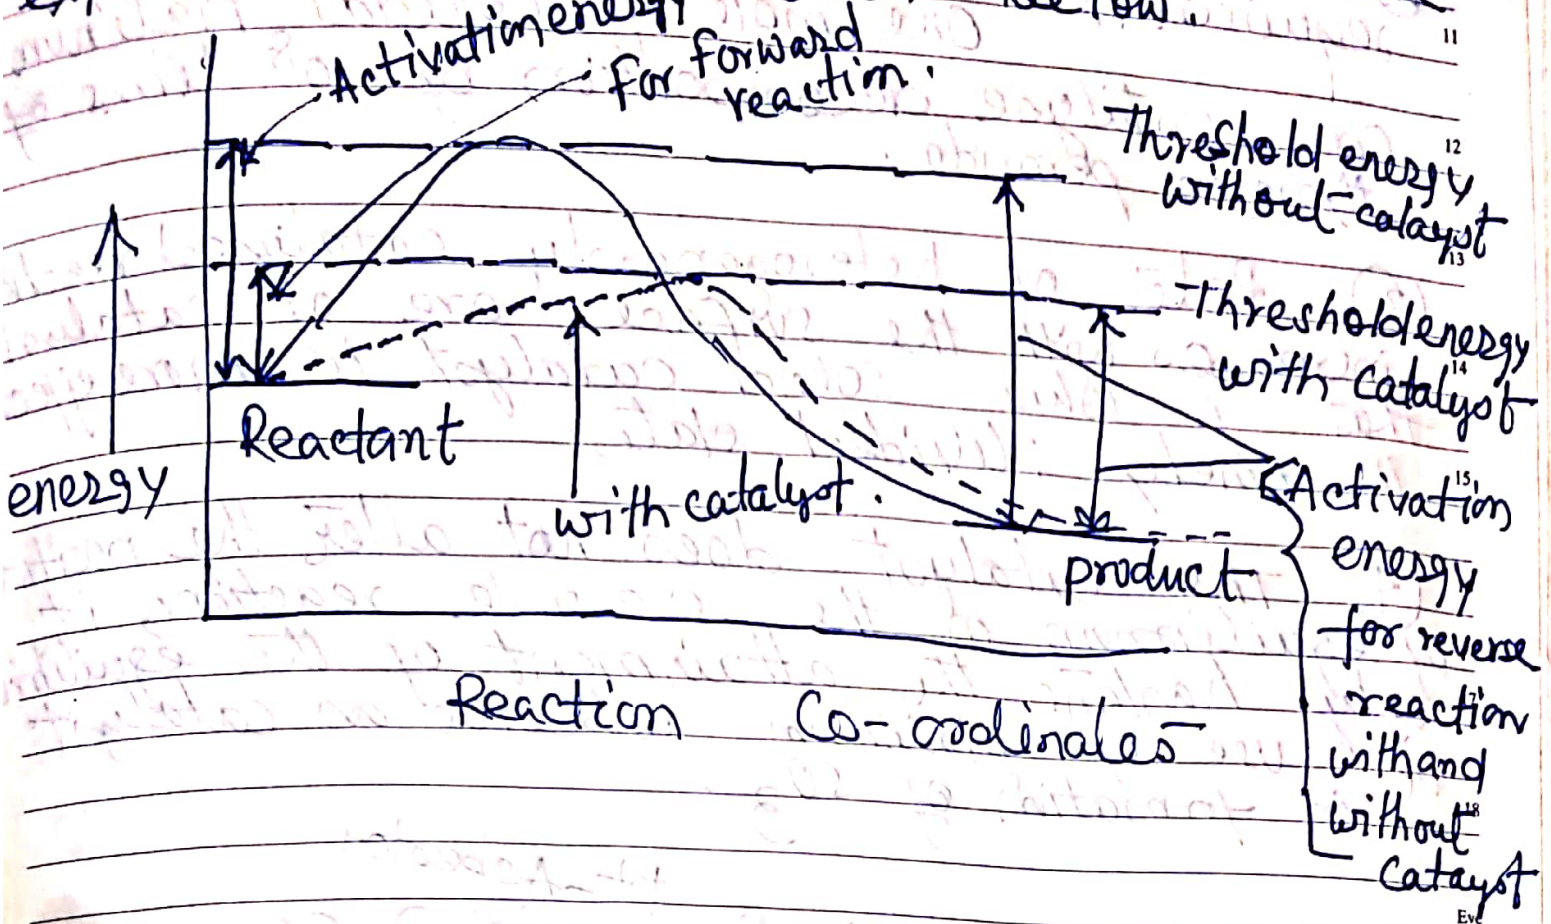 below.
11
Activation energy
for forward
reaction.
12
Threshold energy
without catalyst
13
Threshold energy
14
with catalyst
Reactant
energy
with catalyst.
15
Activation
energy
product
for reverse
reaction
with and
18
without
Catayst
Reaction Co-ordinates
Eve